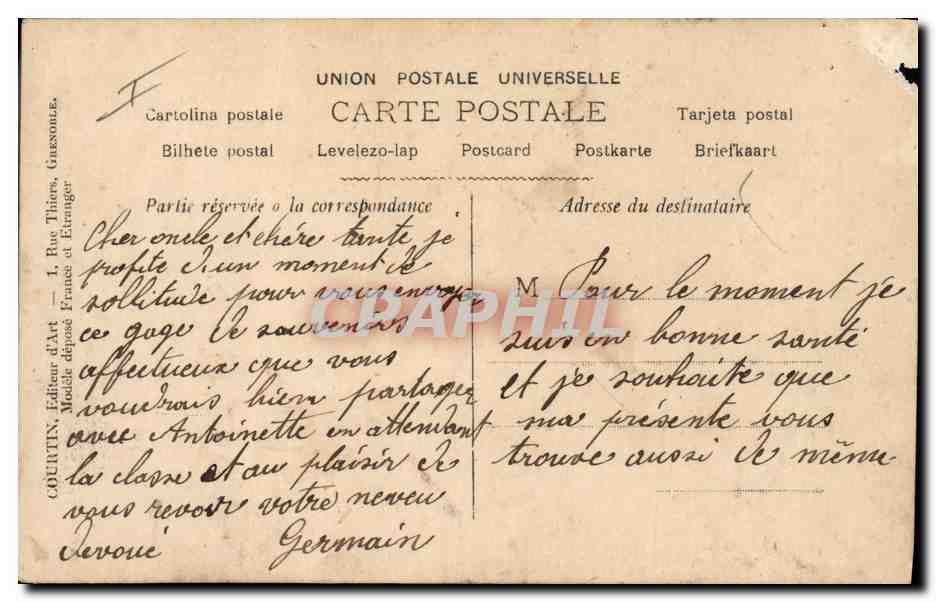 UNION POSTALE UNIVERSELLE
Cartolina postale CARTE POSTALE Tarjeta postal
Bilhete postal Levelezo-lap Postcard Postkarte Briefkaart
Partie réservée a la correspondance
Adresse du destinataire
COURTIN, Editeur d'Art — 1, Rue Thiers, GRENOBLE.
Modèle déposé France et Etranger
Cher oncle et chére tante je
profite d'un moment de
sollitude pour vous envoyer
ce gage de souvenirs
affectueux que vous
voudrais bien partager
avec Antoinette en attendant
la classe et au plaisir de
vous revoir votre neveu
devoué Germain
M Pour le moment je
suis en bonne santé
et je souhaite que
ma présente vous
trouve aussi de même
CPAPHIL